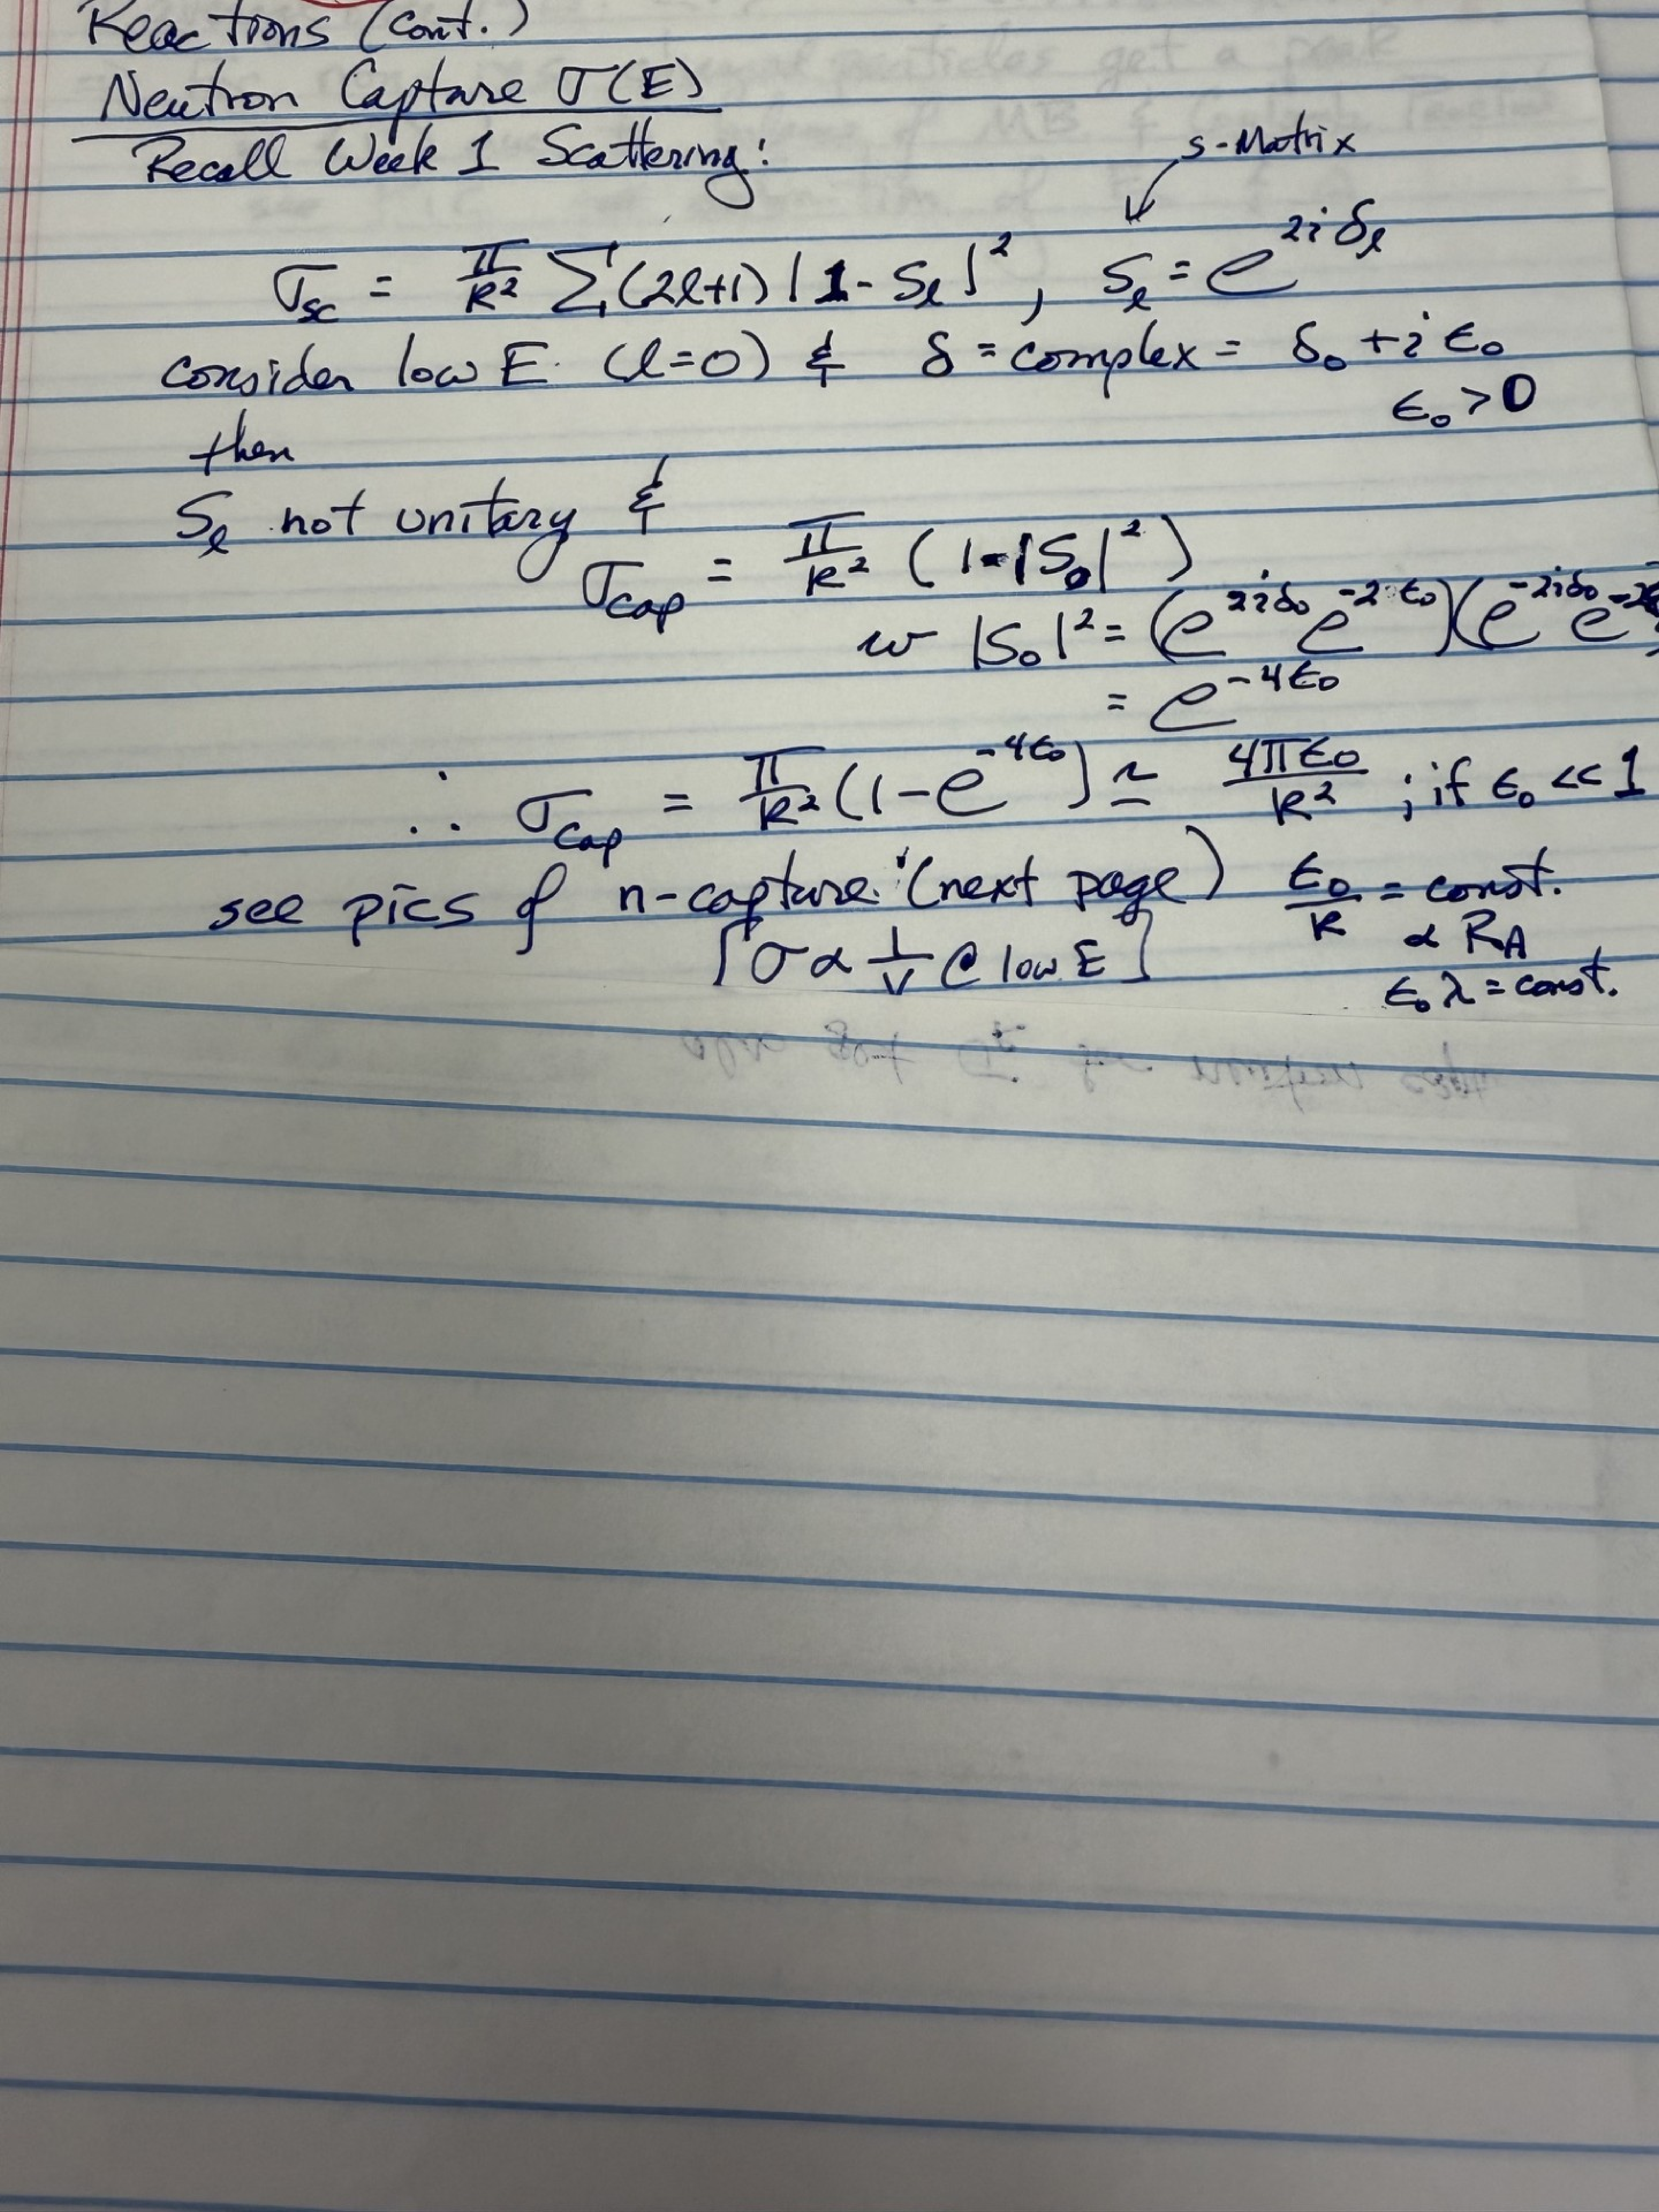 Reactions (cont.)
Neutron Capture σ(E)
Recall Week 1 Scattering:
S-Matrix
σ_sc = π/k² Σ(2l+1) |1 - S_l|², S_l = e^{2iδ_l}
consider low E (l=0) & δ = complex = δ₀ + iε₀
ε₀ > 0
then
S_l not unitary &
σ_cap = π/k² (1-|S₀|²)
w |S₀|² = (e^{2iδ₀} e^{-2ε₀})(e^{-2iδ₀} e^{-2
= e^{-4ε₀}
∴ σ_cap = π/k² (1 - e^{-4ε₀}) ≃ 4πε₀/k² ; if ε₀ << 1
see pics of n-capture (next page) ε₀/k = const.
∝ R_A
[σ ∝ 1/v @ low E]
ε₀λ = const.